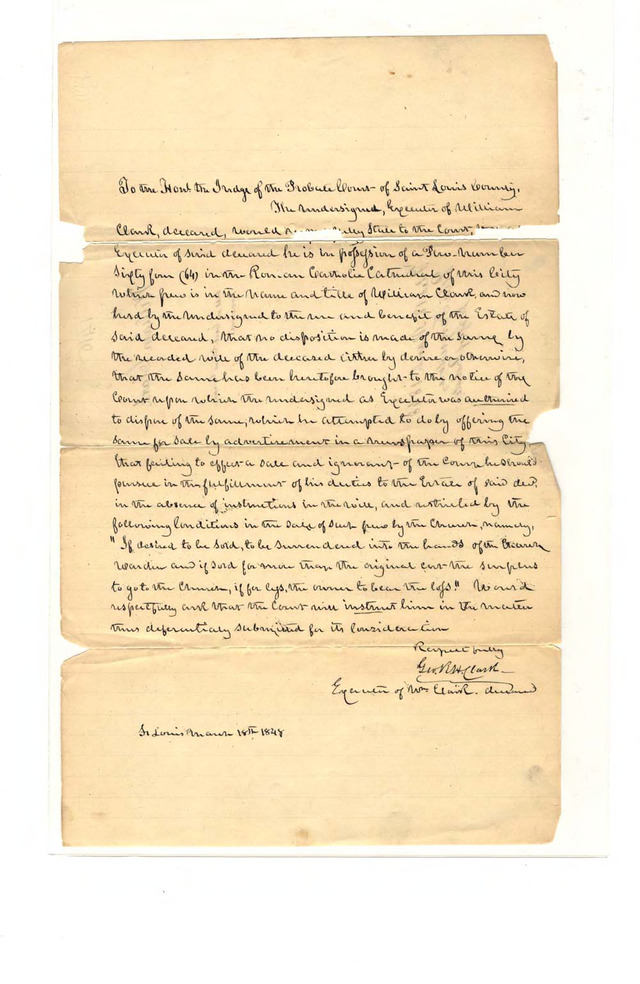 To the Honl. the Judge of the Probate Court of Saint Louis County,
The Undersigned, Executor of William
Clark, deceased, would State to the Court,
Executor of said deceased he is in possession of a Pew Number
Sixty four (64) in the Roman Catholic Cathedral of this City
which pew is in the Name and title of William Clark, and now
held by the Undersigned to the use and benefit of the Estate of
said deceased, that no disposition is made of the same by
the recorded will of the deceased either by devise or otherwise,
that the same has been heretofore brought to the notice of the
Court upon which the undersigned as Executor was authorised
to dispose of the same, which he attempted to do by offering the
same for sale by advertisement in a newspaper of this City
that failing to effect a sale and ignorant of the Course he should
pursue in the fulfillment of his duties to the Estate of said decd.
in the absence of instructions in the will, and restricted by the
following Conditions in the sale of such pew by the Church, namely,
"If desired to be sold, to be surrendered into the hands of the Church
Warden and if sold for more than the original cost the surplus
to go to the Church, if for less, the owner to bear the loss." Would
respectfully ask that the Court will instruct him in the matter
thus deferentially submitted for its Consideration
Respectfully
Geo. R H Clark
Executor of Wm Clark. deceased
St Louis March 18th 1848